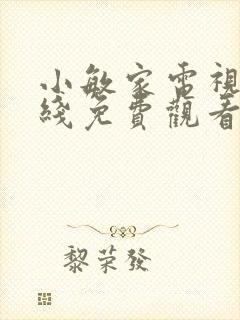 小敏家電視
綫免費觀看
黎荣發